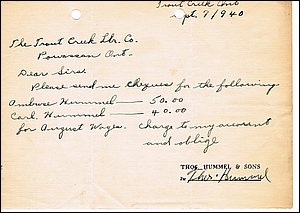 Trout Creek Ont
pt. 7/940
The Trout Creek Lbr. Co.
Powassan Ont.
Dear Sirs
Please send me cheques for the following
Ambrose Hummel — 50.00
Carl. Hummel — 40.00
for August Wages. Charge to my account
and oblige
THOS. HUMMEL & SONS
Thos. Hummel